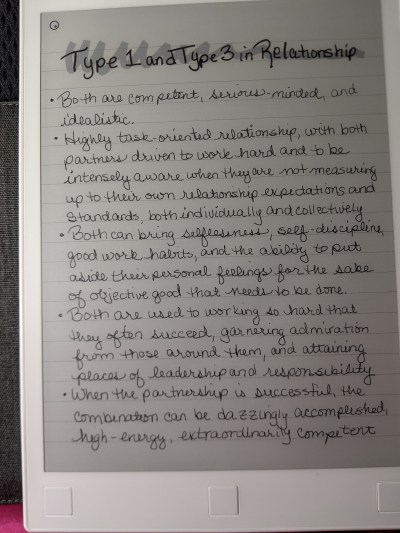 Type 1 and Type 3 in Relationship
• Both are competent, serious-minded, and
idealistic.
• Highly task-oriented relationship, with both
partners driven to work hard and to be
intensely aware when they are not measuring
up to their own relationship expectations and
standards, both individually and collectively
• Both can bring selflessness, self-discipline,
good work habits, and the ability to put
aside their personal feelings for the sake
of objective good that needs to be done.
• Both are used to working so hard that
they often succeed, garnering admiration
from those around them, and attaining
places of leadership and responsibility
• When the partnership is successful, the
combination can be dazzingly accomplished,
high-energy, extraordinarily competent